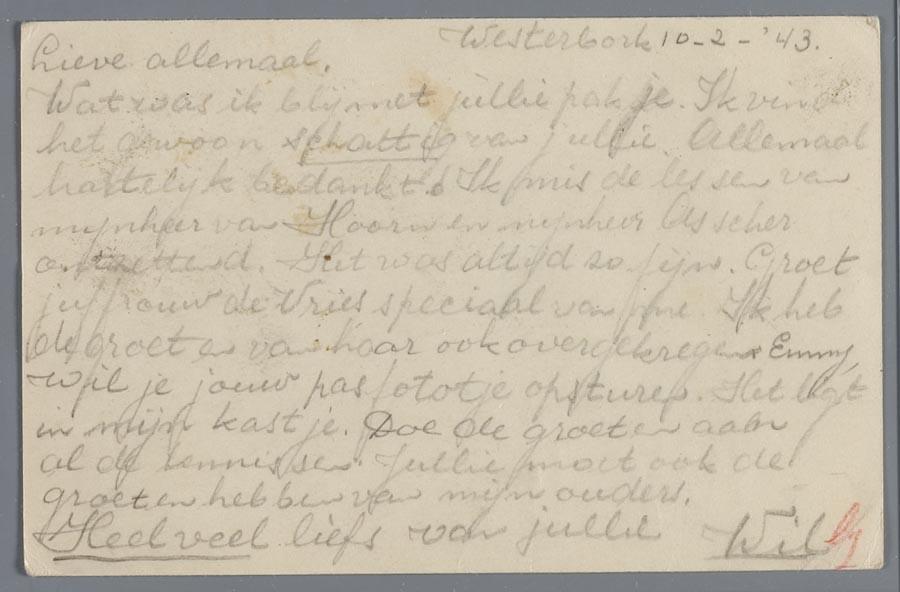 Westerbork 10-2-'43.
Lieve allemaal.
Wat was ik blij met jullie pakje. Ik vind
het gewoon schattig van jullie. Allemaal
hartelijk bedankt! Ik mis de lessen van
mijnheer van Hoorn en mijnheer Asscher
ontzettend. Het was altijd zo fijn. Groet
juffrouw de Vries speciaal van me. Ik heb
de groeten van haar ook overgekregen. Emmy,
wil je jouw pasfototje opsturen. Het ligt
in mijn kastje. Doe de groeten aan
al de kennissen. Jullie moet ook de
groeten hebben van mijn ouders.
Heel veel liefs van jullie Wil